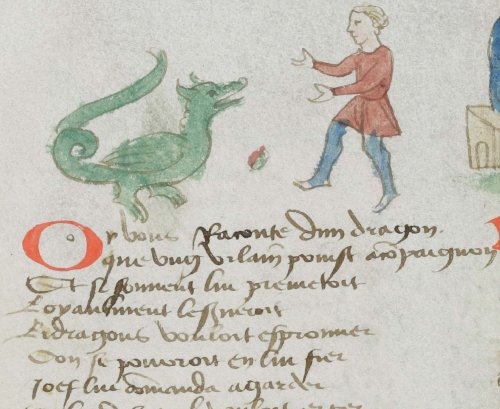 Or vous Raconte dun dragon
que ung vilain poinst acōpaignon
Et si souuent lui prometoit
Loyaulment le seruiroit
Li dragons vouloit esprouuer
Son se pouuoit en lui fier
Joef lui domanda a garder